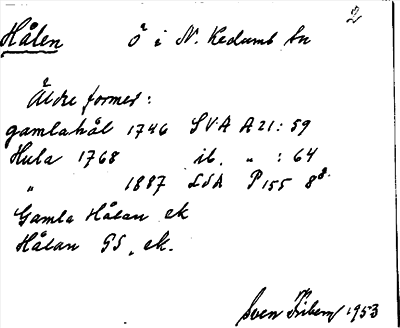 2
Hålen ö i N. Kedums sn
Äldre former:
gamlahål 1746 SVA A21: 59
Hula 1768 ib. " : 64
" 1887 LSA P155 8⁸
Gamla Hålan ek
Hålan GS, ek.
Sven Friberg 1953